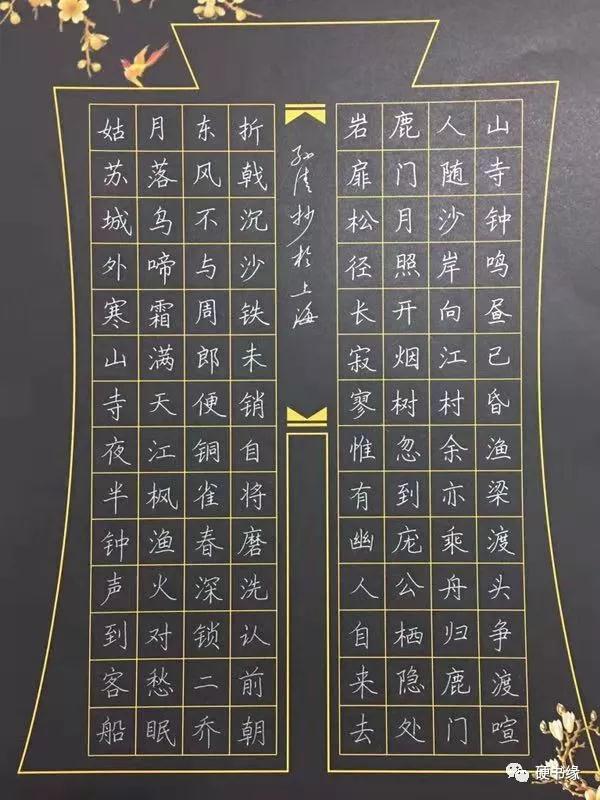 山寺钟鸣昼已昏渔梁渡头争渡喧
人随沙岸向江村余亦乘舟归鹿门
鹿门月照开烟树忽到庞公栖隐处
岩扉松径长寂寥惟有幽人自来去
抄於上海
折戟沉沙铁未销自将磨洗认前朝
东风不与周郎便铜雀春深锁二乔
月落乌啼霜满天江枫渔火对愁眠
姑苏城外寒山寺夜半钟声到客船
硬书缘